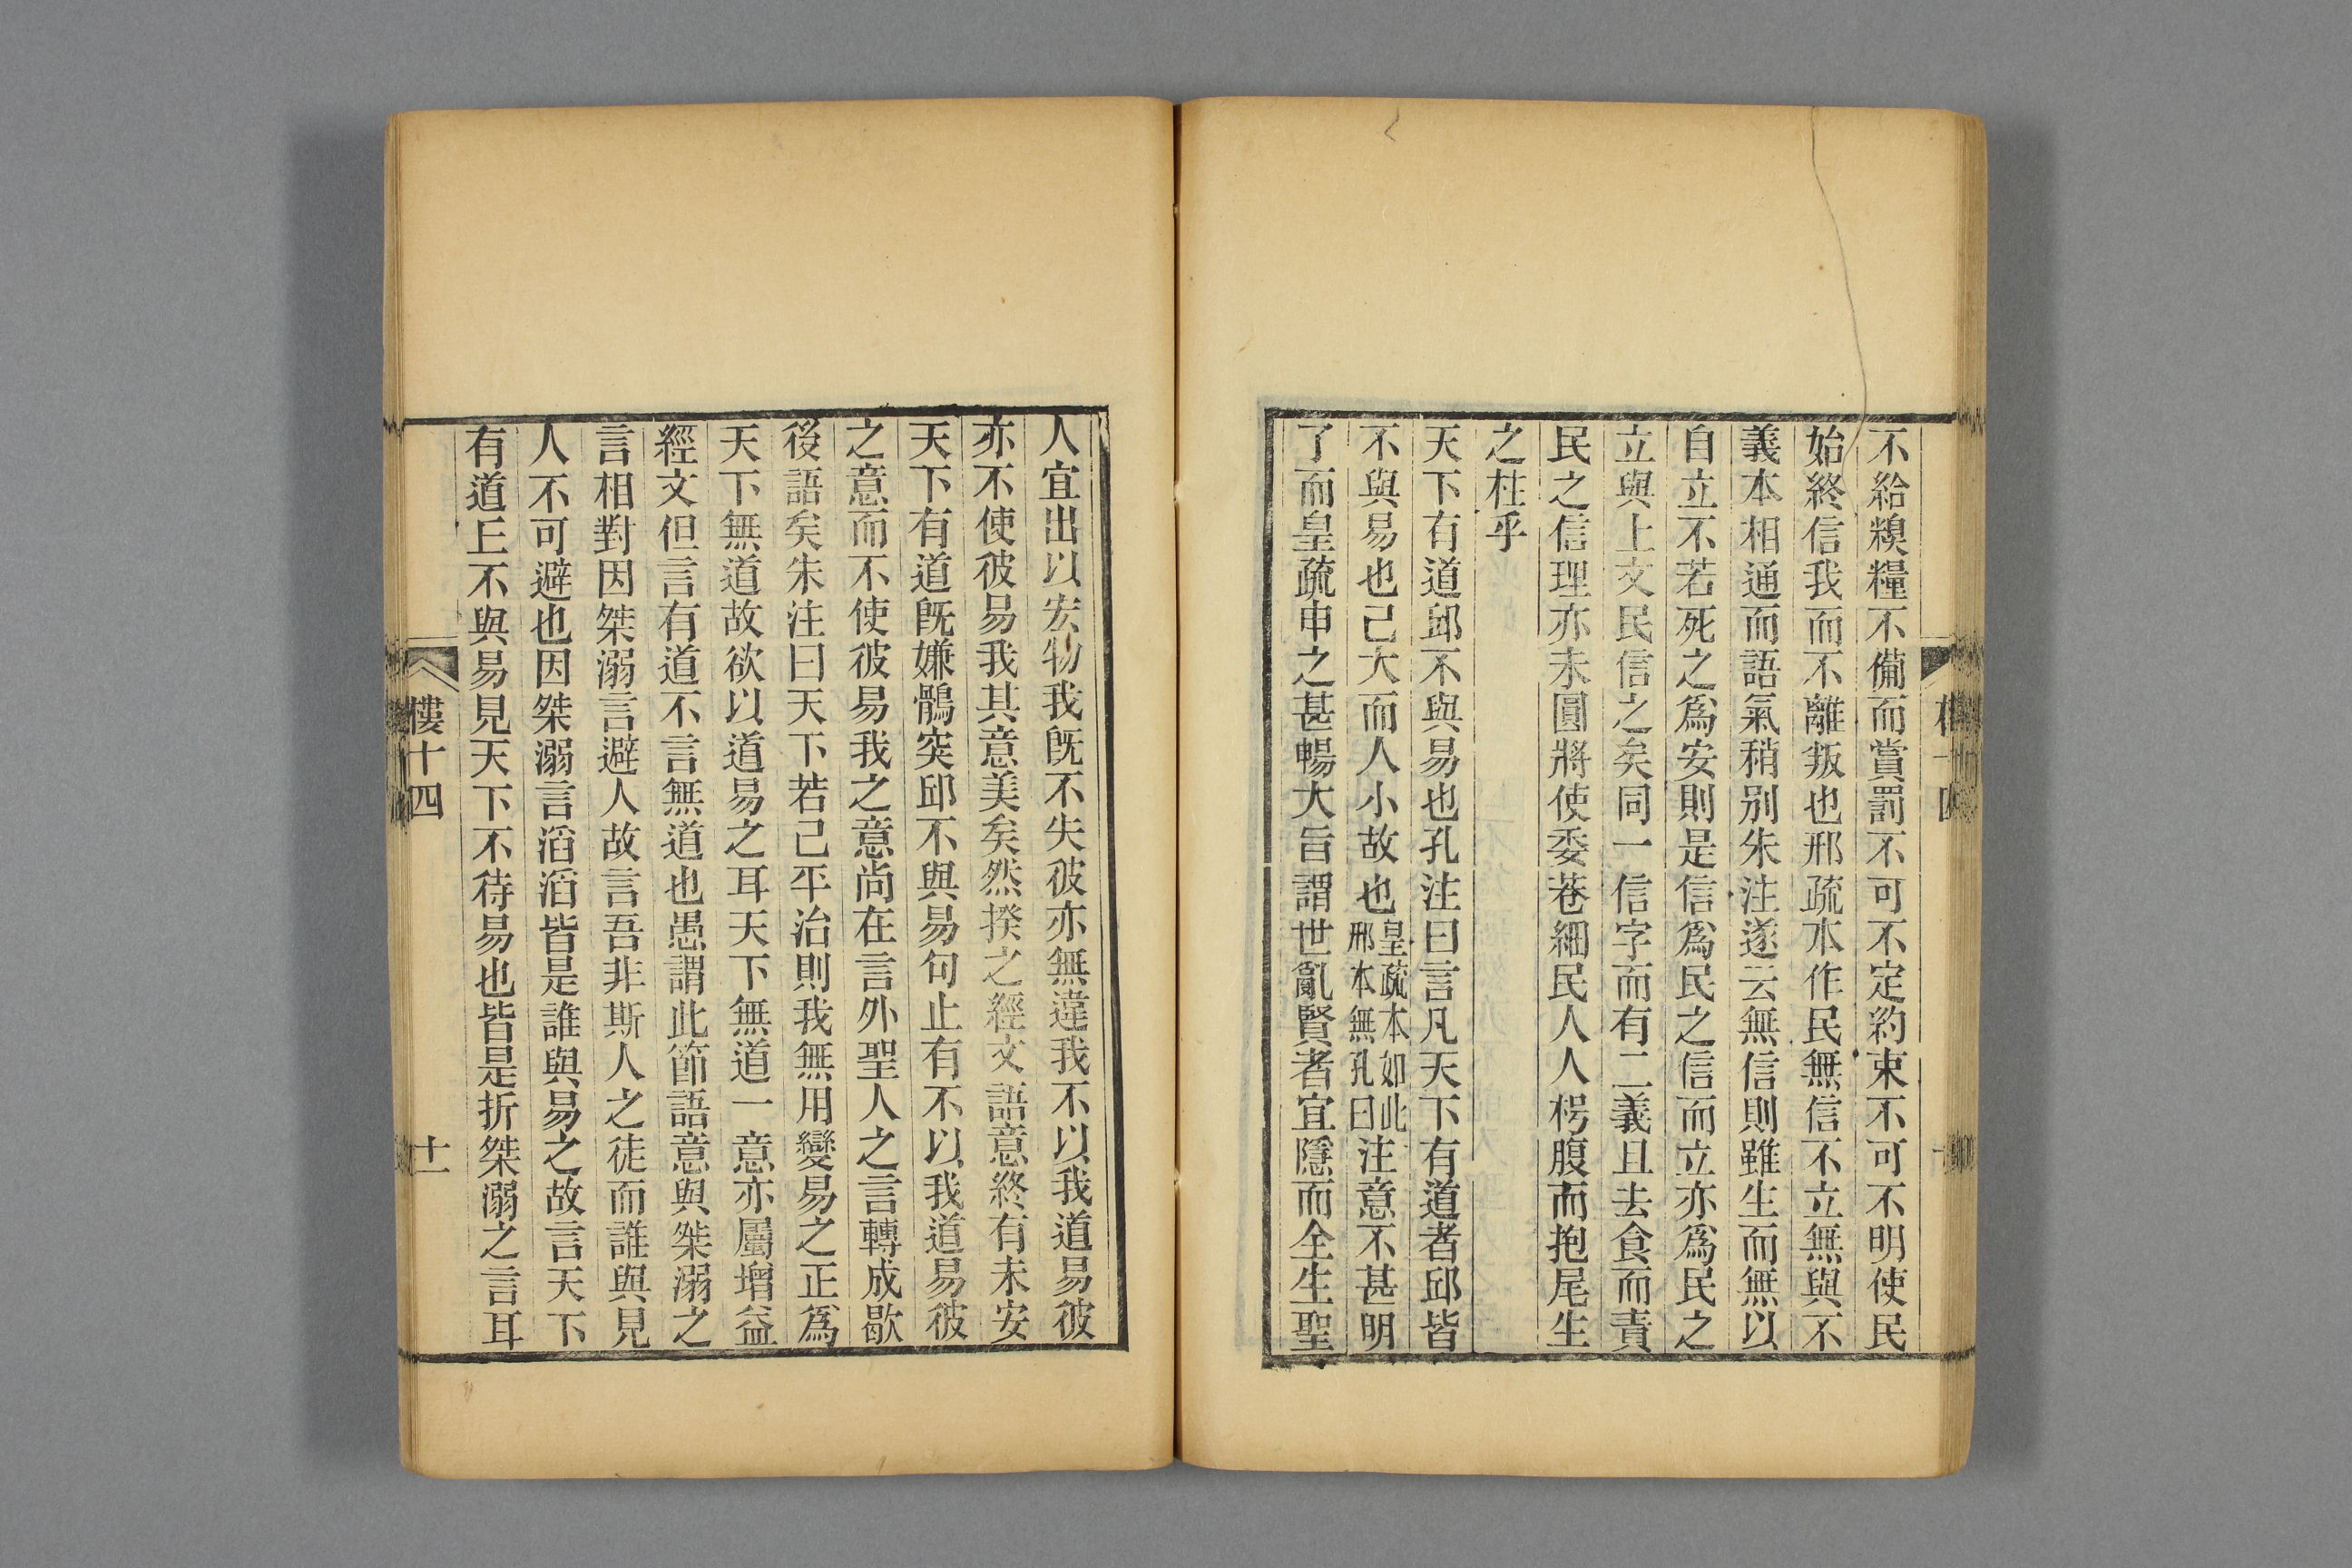 不給糗糧不備而賞罰不可不定約束不可不明使民
始終信我而不離叛也邢疏本作民無信不立無與不
義本相通而語氣稍别朱注遂云無信則雖生而無以
自立不若死之爲安則是信爲民之信而立亦爲民之
立與上文民信之矣同一信字而有二義且去食而責
民之信理亦未圓將使委巷細民人人枵腹而抱尾生
之柱乎
天下有道邱不與易也孔注曰言凡天下有道者邱皆
不與易也己大而人小故也皇疏本如此邢本無孔曰注意不甚明
了而皇疏申之甚暢大旨謂世亂賢者宜隱而全生聖
人宜出以宏物我旣不失彼亦無違我不以我道易彼
亦不使彼易我其意美矣然揆之經文語意終有未安
天下有道旣嫌鶻突邱不與易句止有不以我道易彼
之意而不使彼易我之意尚在言外聖人之言轉成歇
後語矣朱注曰天下若己平治則我無用變易之正爲
天下無道故欲以道易之耳天下無道一意亦屬增益
經文但言有道不言無道也愚謂此節語意與桀溺之
言相對因桀溺言避人故言吾非斯人之徒而誰與見
人不可避也因桀溺言滔滔皆是誰與易之故言天下
有道丘不與易見天下不待易也皆是折桀溺之言耳
樓十四
十一